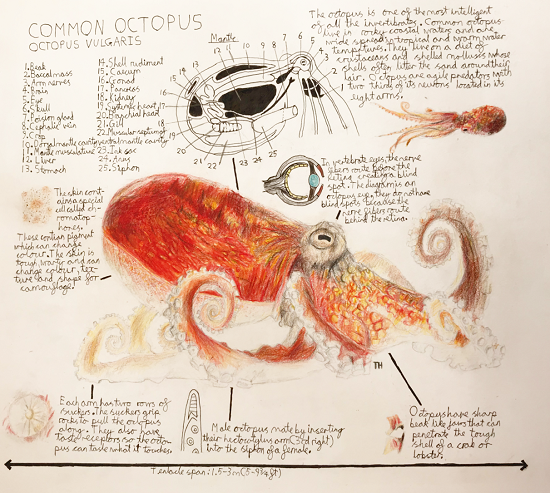 COMMON OCTOPUS
OCTOPUS VULGARIS
1. Beak
2. Buccal mass
3. Arm nerves
4. Brain
5. Eye
6. Skull
7. Poison gland
8. Cephalic vein
9. Crop
10. Dorsal mantle cavity
11. Mantle musculature
12. Liver
13. Stomach
14. Shell rudiment
15. Caecum
16. Gonad
17. Pancreas
18. Kidney
19. Systemic heart
20. Branchial heart
21. Gill
22. Muscular septum of
ventral mantle cavity
23. Ink sac
24. Anus
25. Siphon
Mantle
9 8 7 6 5 4
10
11
12
13
14
15
16
17
18
19
20 21 22 23 24 25
3
2
1
The octopus is one of the most intelligent
of all the invertibrates. Common octopus
live in rocky coastal waters and are
wide spread in tropical and warm water
tempertures. They live on a diet of
crustaceans and shelled molluscs whose
shells often litter the sand around their
lair. Octopus are agile predators with
two thirds of its neurons located in its
eight arms.
In vertebrate eyes, the nerve
fibers route before the
retina, creating a blind
spot. The diagram is an
octopus eye, they do not have
blind spots because the
nerve fibers route
behind the retina.
The skin cont-
ains a special
cell called ch-
romatop-
hores.
These contian pigment
which can change
colour. The skin is
tough, warty and can
change colour, tex-
ture and shape for
camouflage.
TH
Each arm has two rows of
suckers. The suckers grip
rocks to pull the octopus
along. They also have
taste receptors so the octo-
pus can taste what it touches.
Male octopus mate by inserting
their hectocotylus arm (3rd right)
into the siphon of a female.
Octopus have sharp
beak like jaws that can
penetrate the tough
shell of a crab or
lobster.
Tentacle span: 1.5-3m (5-9¾ft)